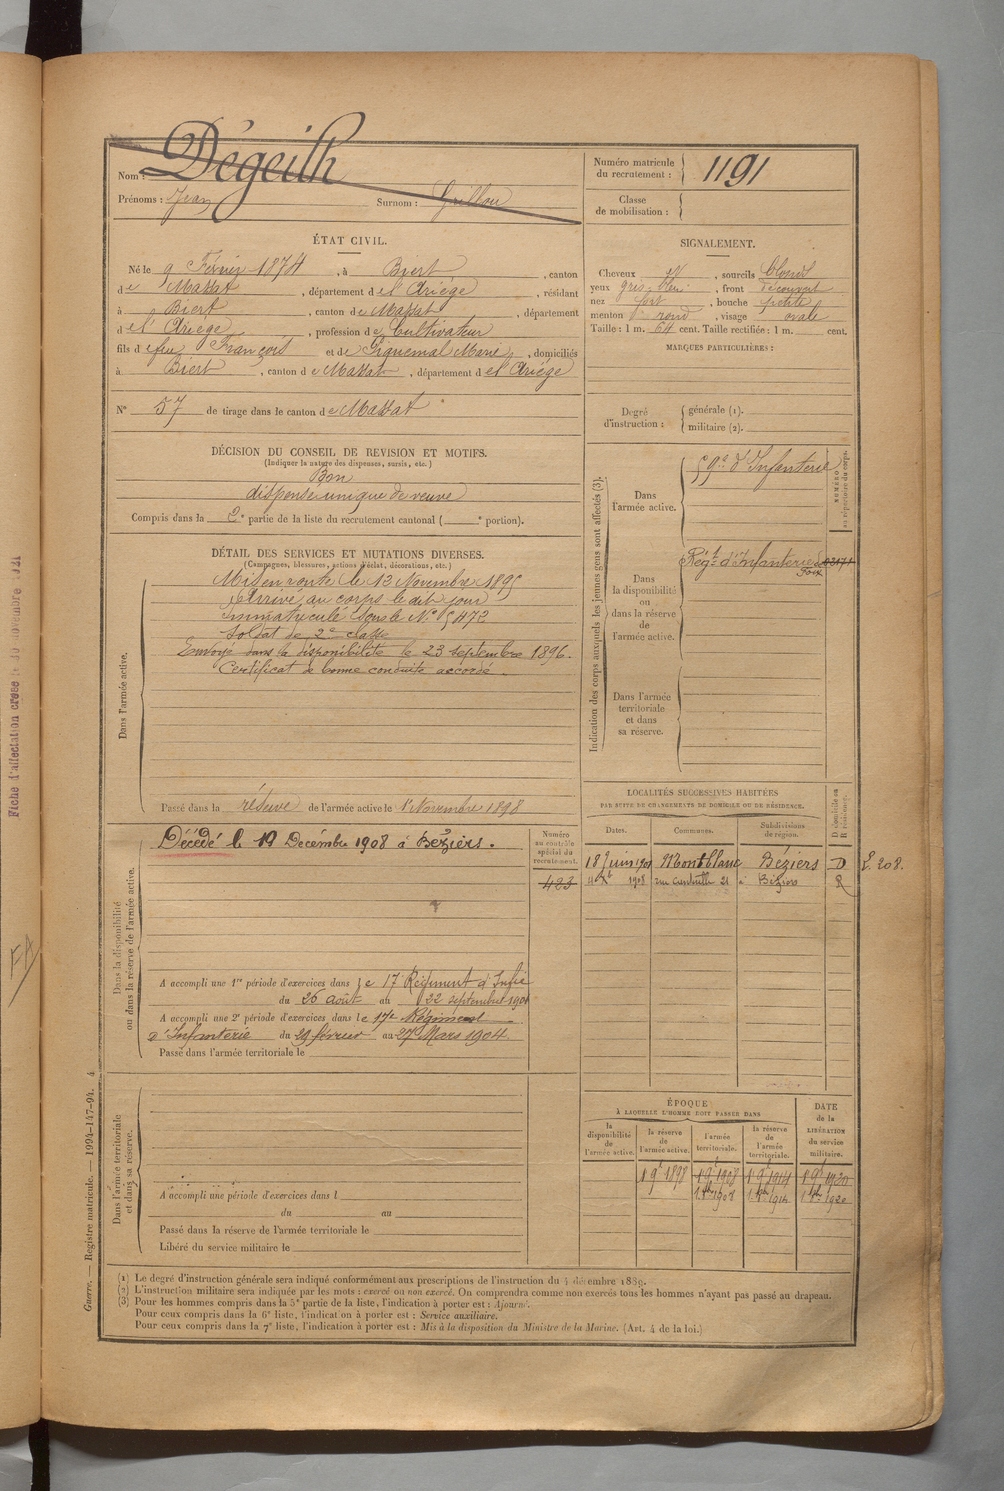 Nom : Dégeilh
Prénoms : Jean Surnom : Grillou
Numéro matricule du recrutement : 1191
Classe de mobilisation :
ÉTAT CIVIL.
Né le 9 Février 1874, à Biert, canton
de Massat, département de l'Ariège, résidant
à Biert, canton de Massat, département
de l'Ariège, profession de Cultivateur
fils de feu François et de Piquemal Marie, domiciliés
à Biert, canton de Massat, département de l'Ariège
N° 57 de tirage dans le canton de Massat
SIGNALEMENT.
Cheveux et, sourcils blonds
yeux gris-bleu, front découvert
nez fort, bouche petite
menton rond, visage ovale
Taille : 1 m. 64 cent. Taille rectifiée : 1 m. cent.
MARQUES PARTICULIÈRES :
Degré d'instruction : générale (1).
militaire (2).
DÉCISION DU CONSEIL DE REVISION ET MOTIFS.
(Indiquer la nature des dispenses, sursis, etc.)
Bon
dispense unique de veuve
Compris dans la 2e partie de la liste du recrutement cantonal ( e portion).
DÉTAIL DES SERVICES ET MUTATIONS DIVERSES.
(Campagnes, blessures, actions d'éclat, décorations, etc.)
Dans l'armée active.
Mis en route le 13 Novembre 1895
Arrivé au corps le dit jour
Immatriculé sous le N° 5472
Soldat de 2e classe
Envoyé dans la disponibilité le 23 septembre 1896.
Certificat de bonne conduite accordé.
Passé dans la réserve de l'armée active le 1r Novembre 1898
Indication des corps auxquels les jeunes gens sont affectés (3).
NUMÉRO au répertoire du corps.
Dans l'armée active.
59e d'Infanterie
Dans la disponibilité ou dans la réserve de l'armée active.
Régt d'Infanterie de Foix 03171
Dans l'armée territoriale et dans sa réserve.
Dans la disponibilité ou dans la réserve de l'armée active.
Décédé le 19 Décembre 1908 à Béziers.
Numéro au contrôle spécial du recrutement.
423
A accompli une 1re période d'exercices dans le 17e Régiment d'Infie
du 26 août au 22 septembre 1901
A accompli une 2e période d'exercices dans le 17e Régiment
d'Infanterie du 29 février au 27 Mars 1904.
Passé dans l'armée territoriale le
LOCALITÉS SUCCESSIVES HABITÉES
PAR SUITE DE CHANGEMENTS DE DOMICILE OU DE RÉSIDENCE.
Dates. Communes. Subdivisions de région. D domicile ou R résidence.
18 Juin 1901 Montblanc Béziers D L 208.
11 Xbre 1908 21 à Béziers R
Dans l'armée territoriale et dans sa réserve.
A accompli une période d'exercices dans l
du au
Passé dans la réserve de l'armée territoriale le
Libéré du service militaire le
ÉPOQUE
À LAQUELLE L'HOMME DOIT PASSER DANS
DATE de la LIBÉRATION du service militaire.
la disponibilité de l'armée active. la réserve de l'armée active. l'armée territoriale. la réserve de l'armée territoriale.
1 9bre 1898 1 9bre 1908 1 9bre 1914 1 9bre 1920
1 8bre 1908 1 8bre 1914 1 8bre 1920
(1) Le degré d'instruction générale sera indiqué conformément aux prescriptions de l'instruction du 4 décembre 1889.
(2) L'instruction militaire sera indiquée par les mots : exercé ou non exercé. On comprendra comme non exercés tous les hommes n'ayant pas passé au drapeau.
(3) Pour les hommes compris dans la 5e partie de la liste, l'indication à porter est : Ajourné.
Pour ceux compris dans la 6e liste, l'indication à porter est : Service auxiliaire.
Pour ceux compris dans la 7e liste, l'indication à porter est : Mis à la disposition du Ministre de la Marine. (Art. 4 de la loi.)
Guerre. — Registre matricule. — 1994-147-94. 4
Fiche d'affectation créée le 30 novembre 1921
FA